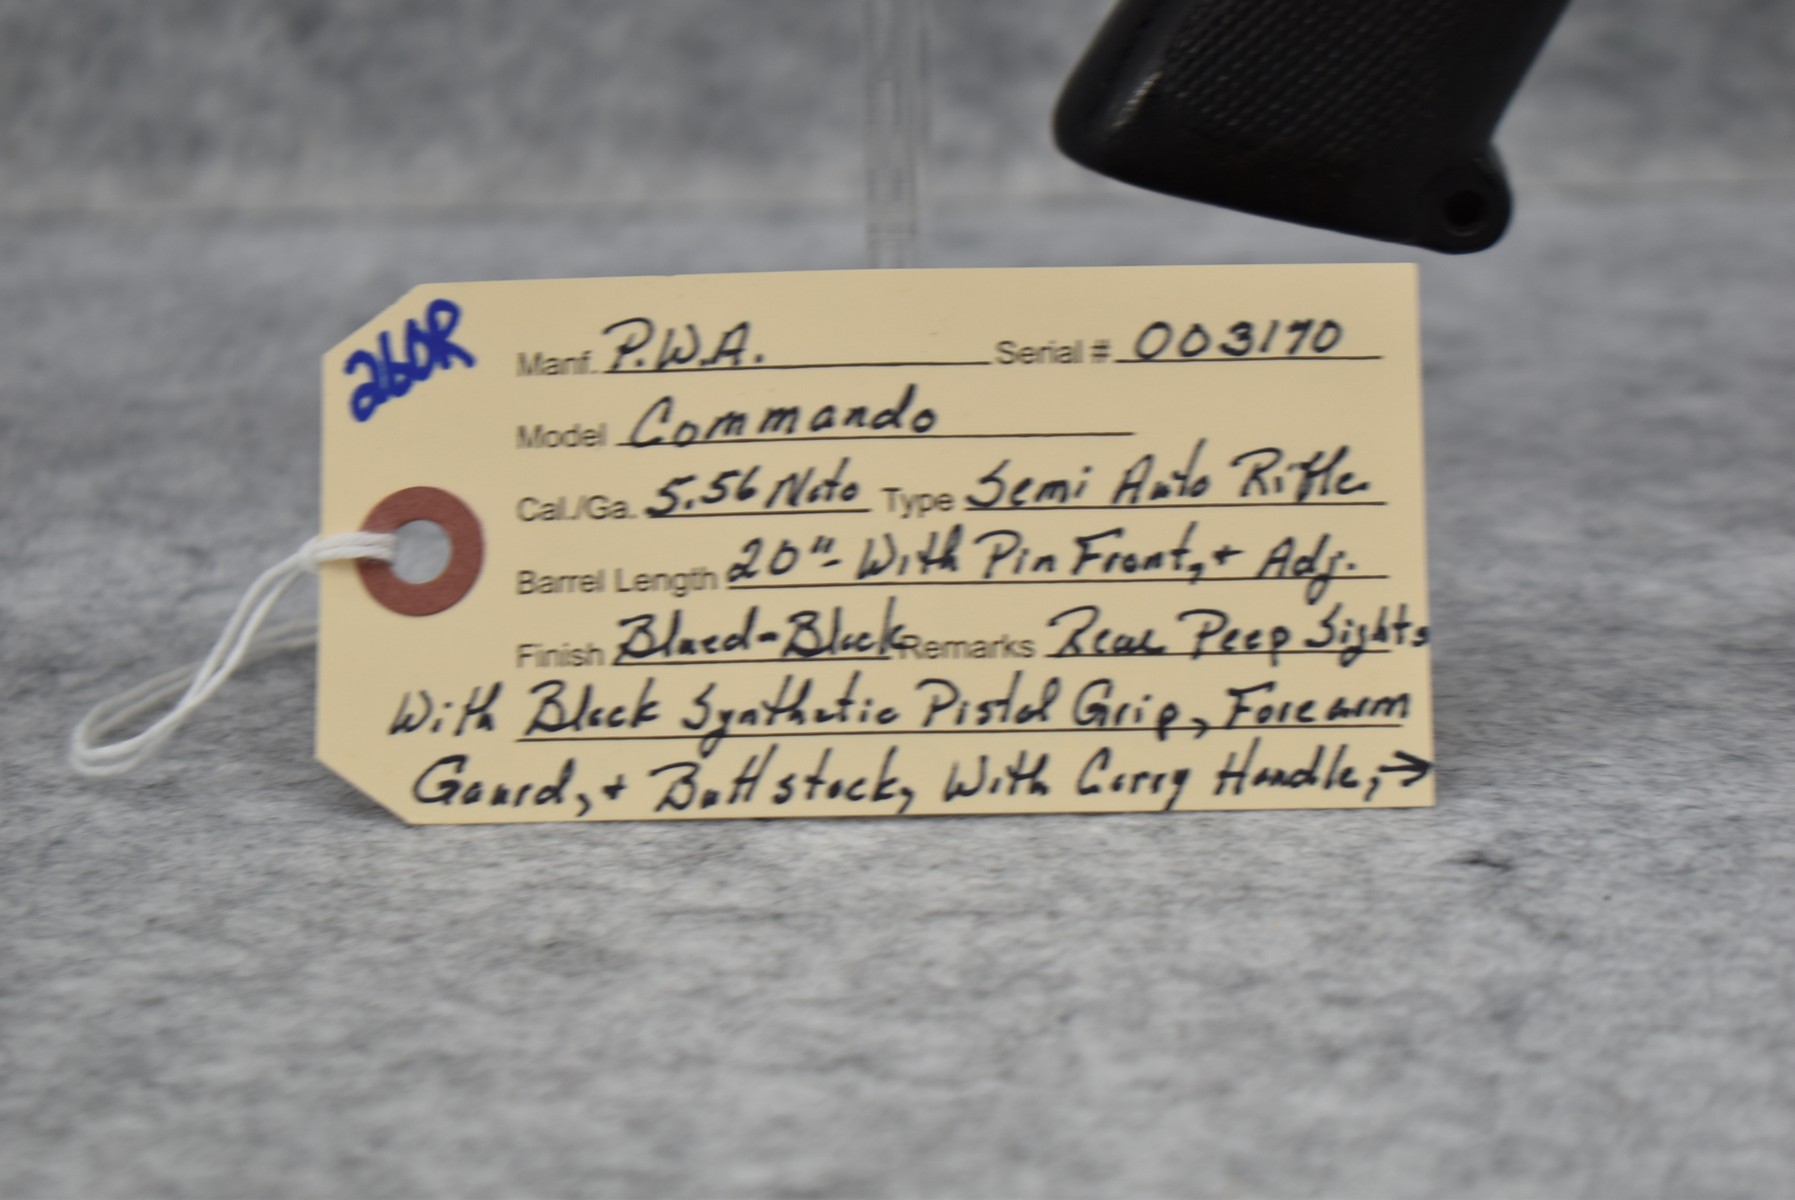 260R
Manf. P.W.A. Serial # 003170
Model Commando
Cal./Ga. 5.56 Nato Type Semi Auto Rifle
Barrel Length 20"- With Pin Front, + Adj.
Finish Blued-Black Remarks Rear Peep Sights
With Black Synthetic Pistol Grip, Forearm
Gaurd, + Buttstock, With Carry Handle, →